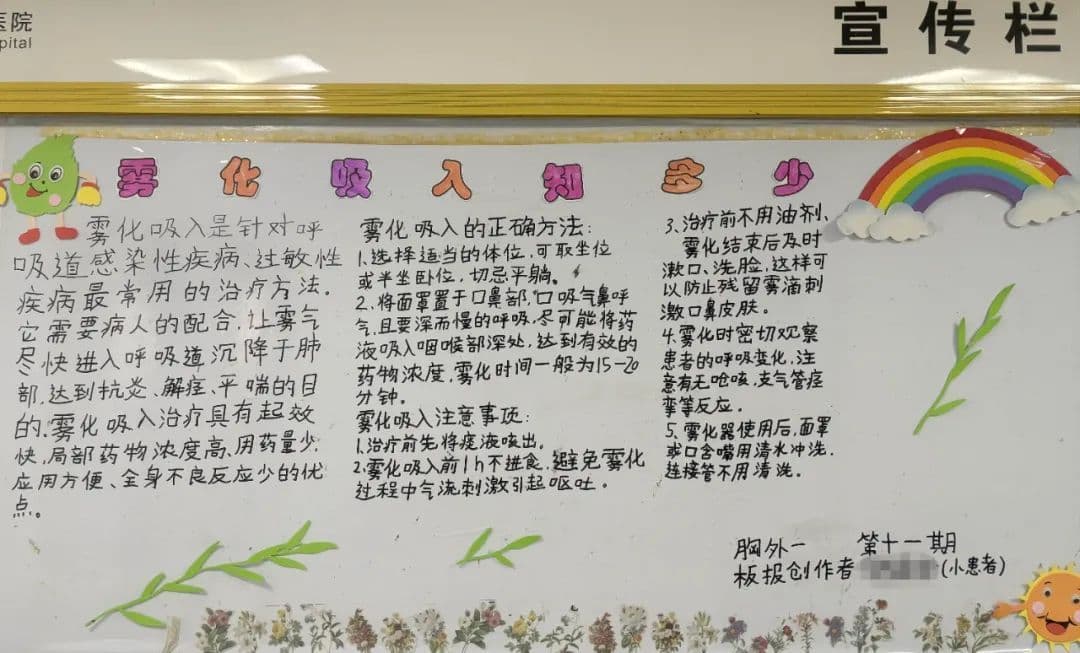 医院
pital
宣传栏
雾化吸入知多少
雾化吸入是针对呼
吸道感染性疾病、过敏性
疾病最常用的治疗方法。
它需要病人的配合,让雾气
尽快进入呼吸道沉降于肺
部,达到抗炎、解痉、平喘的目
的,雾化吸入治疗具有起效
快,局部药物浓度高、用药量少,
应用方便、全身不良反应少的优
点。
雾化吸入的正确方法:
1.选择适当的体位,可取坐位
或半坐卧位,切忌平躺。
2.将面罩置于口鼻部,口吸气鼻呼
气,且要深而慢的呼吸,尽可能将药
液吸入咽喉部深处,达到有效的
药物浓度,雾化时间一般为15-20
分钟。
雾化吸入注意事项:
1.治疗前先将痰液咳出。
2.雾化吸入前1h不进食,避免雾化
过程中气流刺激引起呕吐。
3.治疗前不用油剂、
雾化结束后及时
漱口、洗脸,这样可
以防止残留雾滴刺
激口鼻皮肤。
4.雾化时密切观察
患者的呼吸变化,注
意有无呛咳,支气管痉
挛等反应。
5.雾化器使用后,面罩
或口含嘴用清水冲洗,
连接管不用清洗。
胸外一 第十一期
板报创作者 (小患者)